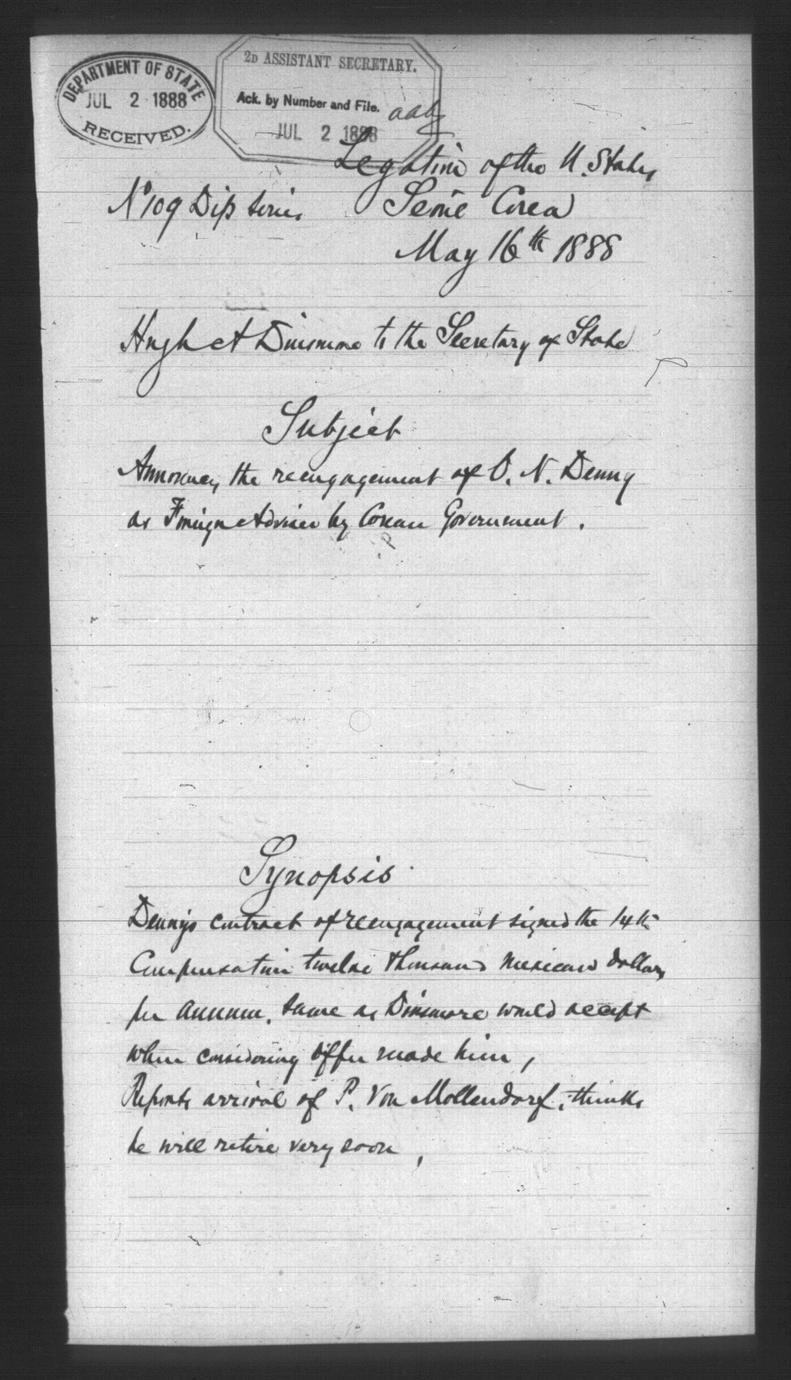 DEPARTMENT OF STATE
JUL 2 1888
RECEIVED.
2D ASSISTANT SECRETARY.
Ack. by Number and File.
JUL 2 1888
Legation of the U. States
No 109 Dip Series Seoul Corea
May 16th 1888
Hugh A Dinsmore to the Secretary of State
Subject
Announces the reengagement of O. N. Denny
as Foreign Adviser by Corean Government.
Synopsis
Dennys contract of reengagement signed the 14th
Compensation twelve thousand Mexican dollars
per annum, same as Dinsmore would accept
when considering offer made him,
Reports arrival of P. Von Mollendorf, thinks
he will retire very soon,